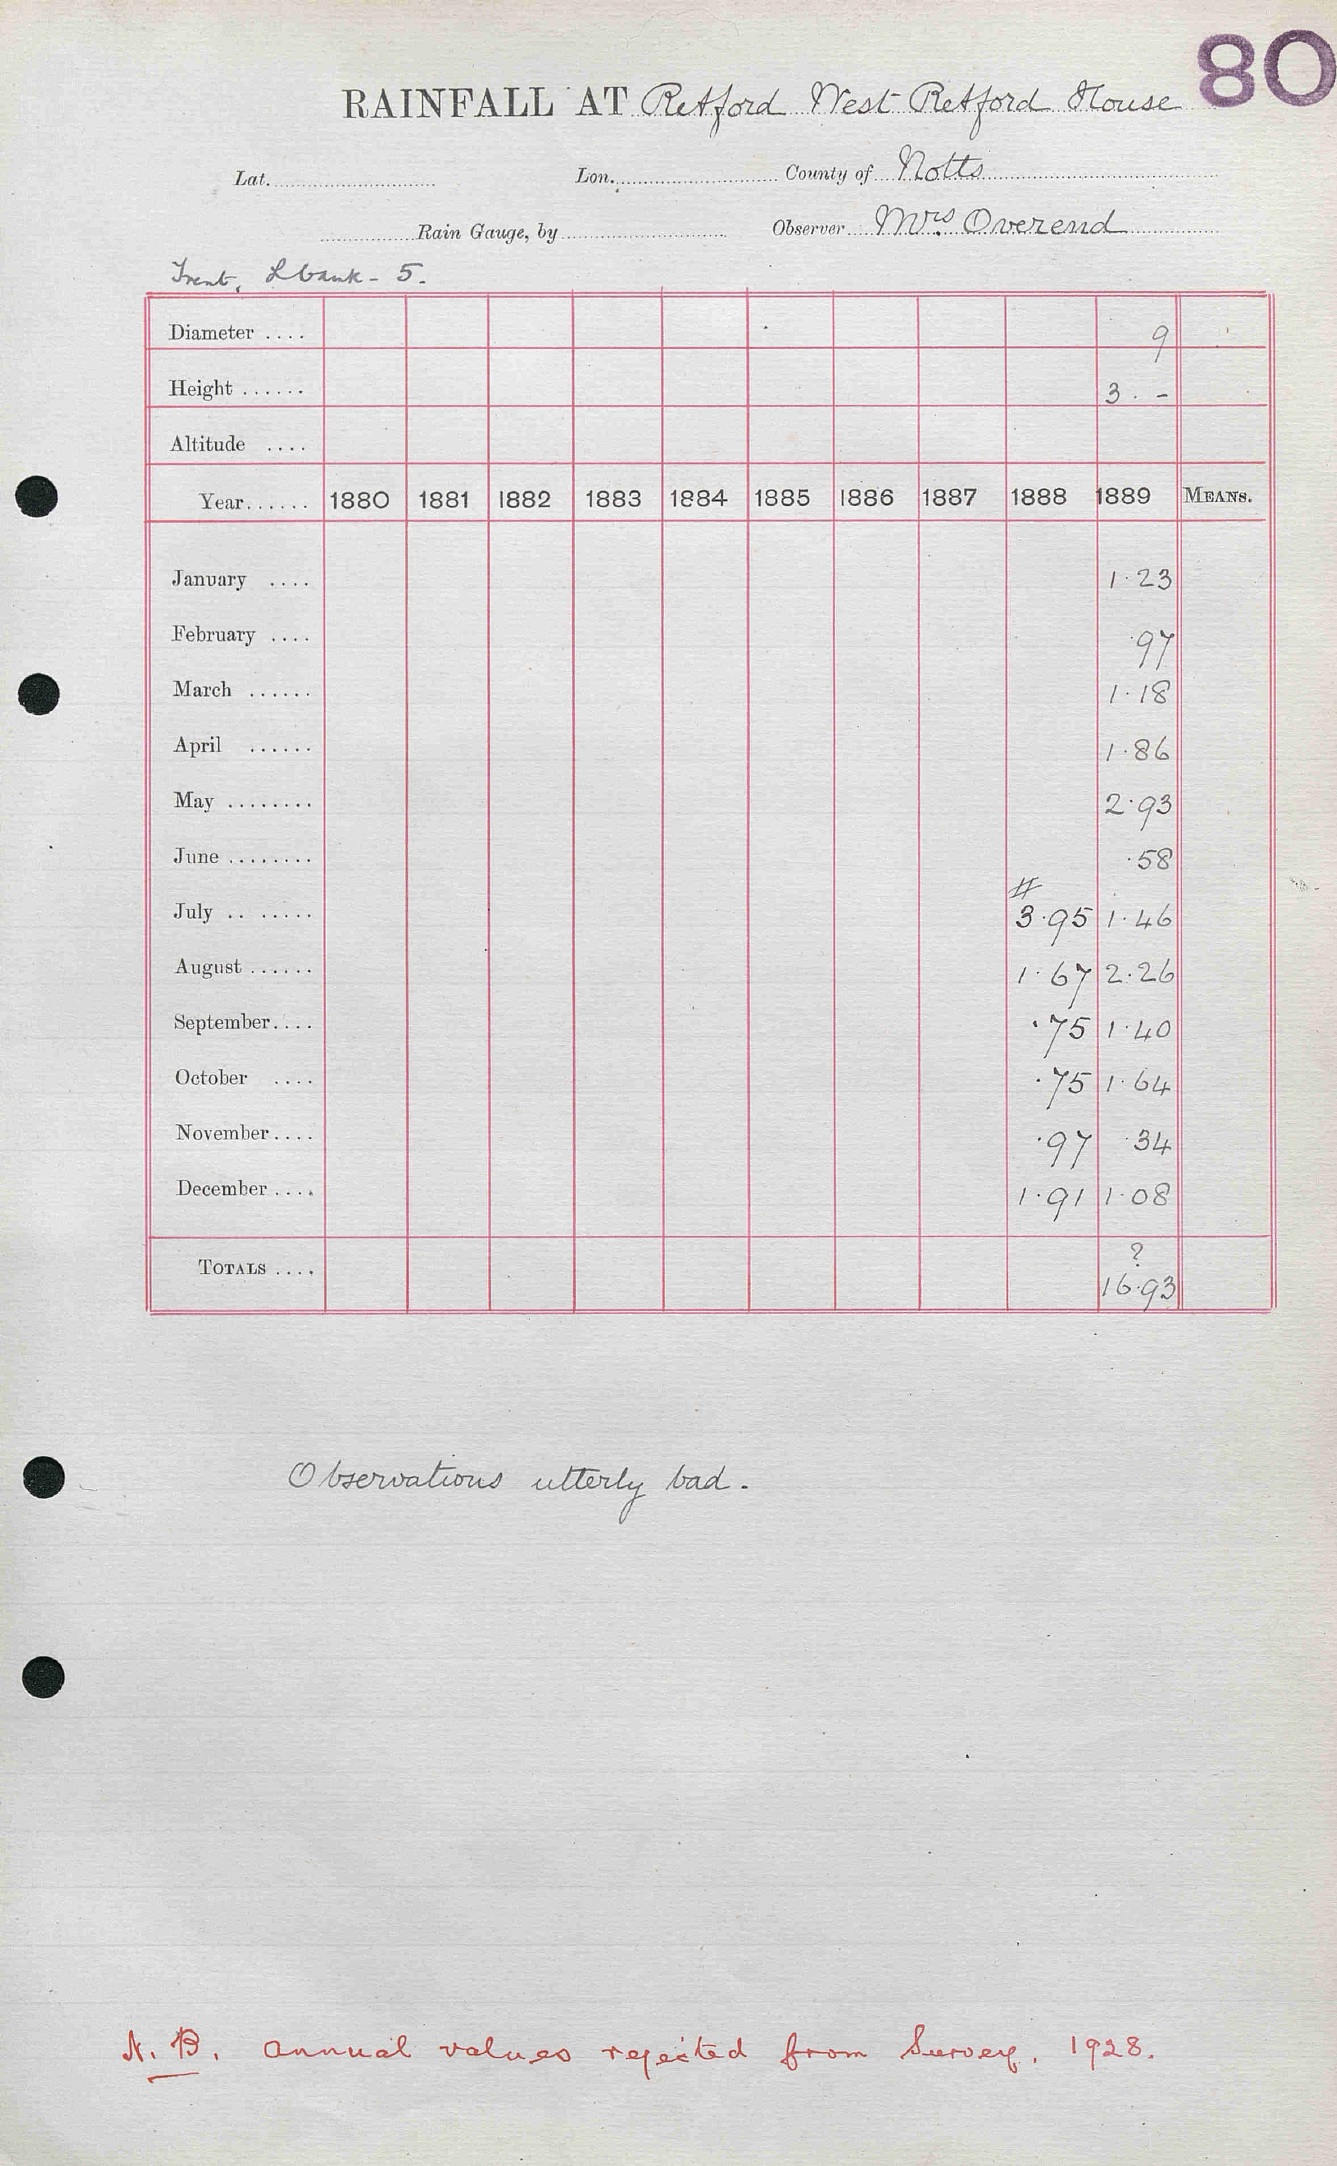 80
RAINFALL AT Retford West Retford House
Lat. Lon. County of Notts
Rain Gauge, by Observer Mrs. Overend
Trent, L bank - 5.
Diameter .... 9
Height ...... 3 . -
Altitude ....
Year...... 1880 1881 1882 1883 1884 1885 1886 1887 1888 1889 MEANS.
January .... 1.23
February .... .97
March ...... 1.18
April ...... 1.86
May ........ 2.93
June ........ .58
#
July .. ...... 3.95 1.46
August ...... 1.67 2.26
September.... .75 1.40
October .... .75 1.64
November.... .97 .34
December .... 1.91 1.08
?
TOTALS .... 16.93
Observations utterly bad.
N.B. annual values rejected from Survey, 1928.